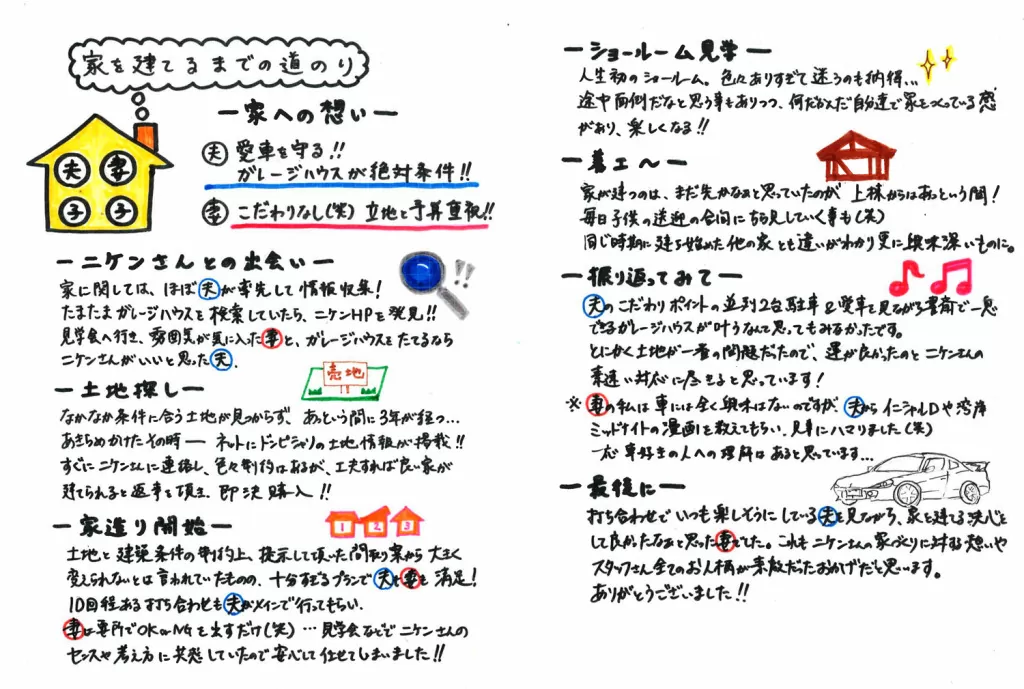 家を建てるまでの道のり
夫 妻
子 子
ー家への想いー
夫 愛車を守る!!
ガレージハウスが絶対条件!!
妻 こだわりなし(笑) 立地と予算重視!!
ーニケンさんとの出会いー
家に関しては、ほぼ夫が率先して情報収集!
たまたまガレージハウスを検索していたら、ニケンHPを発見!!
見学会へ行き、雰囲気が気に入った妻と、ガレージハウスをたてるなら
ニケンさんがいいと思った夫.
ー土地探しー
売地
なかなか条件に合う土地が見つからず、あっという間に3年が経つ…
あきらめかけたその時ー ネットにドンピシャリの土地情報が掲載!!
すぐにニケンさんに連絡し、色々制約はあるが、工夫すれば良い家が
建てられると返事を頂き、即決購入!!
ー家造り開始ー
1 2 3
土地と建築条件の制約上、提示して頂いた間取り案から大きく
変えられないとは言われていたものの、十分すぎるプランで夫も妻も満足!
10回程ある打ち合わせも夫がメインで行ってもらい.
妻は要所でOK or NGを出すだけ(笑) …見学会などでニケンさんの
センスや考え方に共感していたので安心して任せてしまいました!!
ーショールーム見学ー
人生初のショールーム。色々ありすぎて迷うのも納得…
途中面倒だなと思う事もありつつ、何だかんだ自分達で家をつくっている感
があり、楽しくなる!!
ー着工〜ー
家が建つのは、まだ先かなぁと思っていたのが 上棟からはあっという間!
毎日子供の送迎の合間にちら見していく事も(笑)
同じ時期に建ち始めた他の家とも違いがわかり更に興味深いものに。
ー振り返ってみてー
夫のこだわりポイントの並列2台駐車&愛車を見ながら書斎で一息
できるガレージハウスが叶うなんて思ってもみなかったです。
とにかく土地が一番の問題だったので、運が良かったのとニケンさんの
素速い対応に尽きると思っています!
※妻の私は車には全く興味はないのですが、夫からイニシャルDや湾岸
ミッドナイトの漫画を教えてもらい、見事にハマりました(笑)
一応車好きの人への理解はあると思っています…
ー最後にー
打ち合わせでいつも楽しそうにしている夫を見ながら、家を建てる決心を
して良かったなぁと思った妻でした。これもニケンさんの家づくりに対する想いや
スタッフさん全てのお人柄が素敵だったおかげだと思います。
ありがとうございました!!